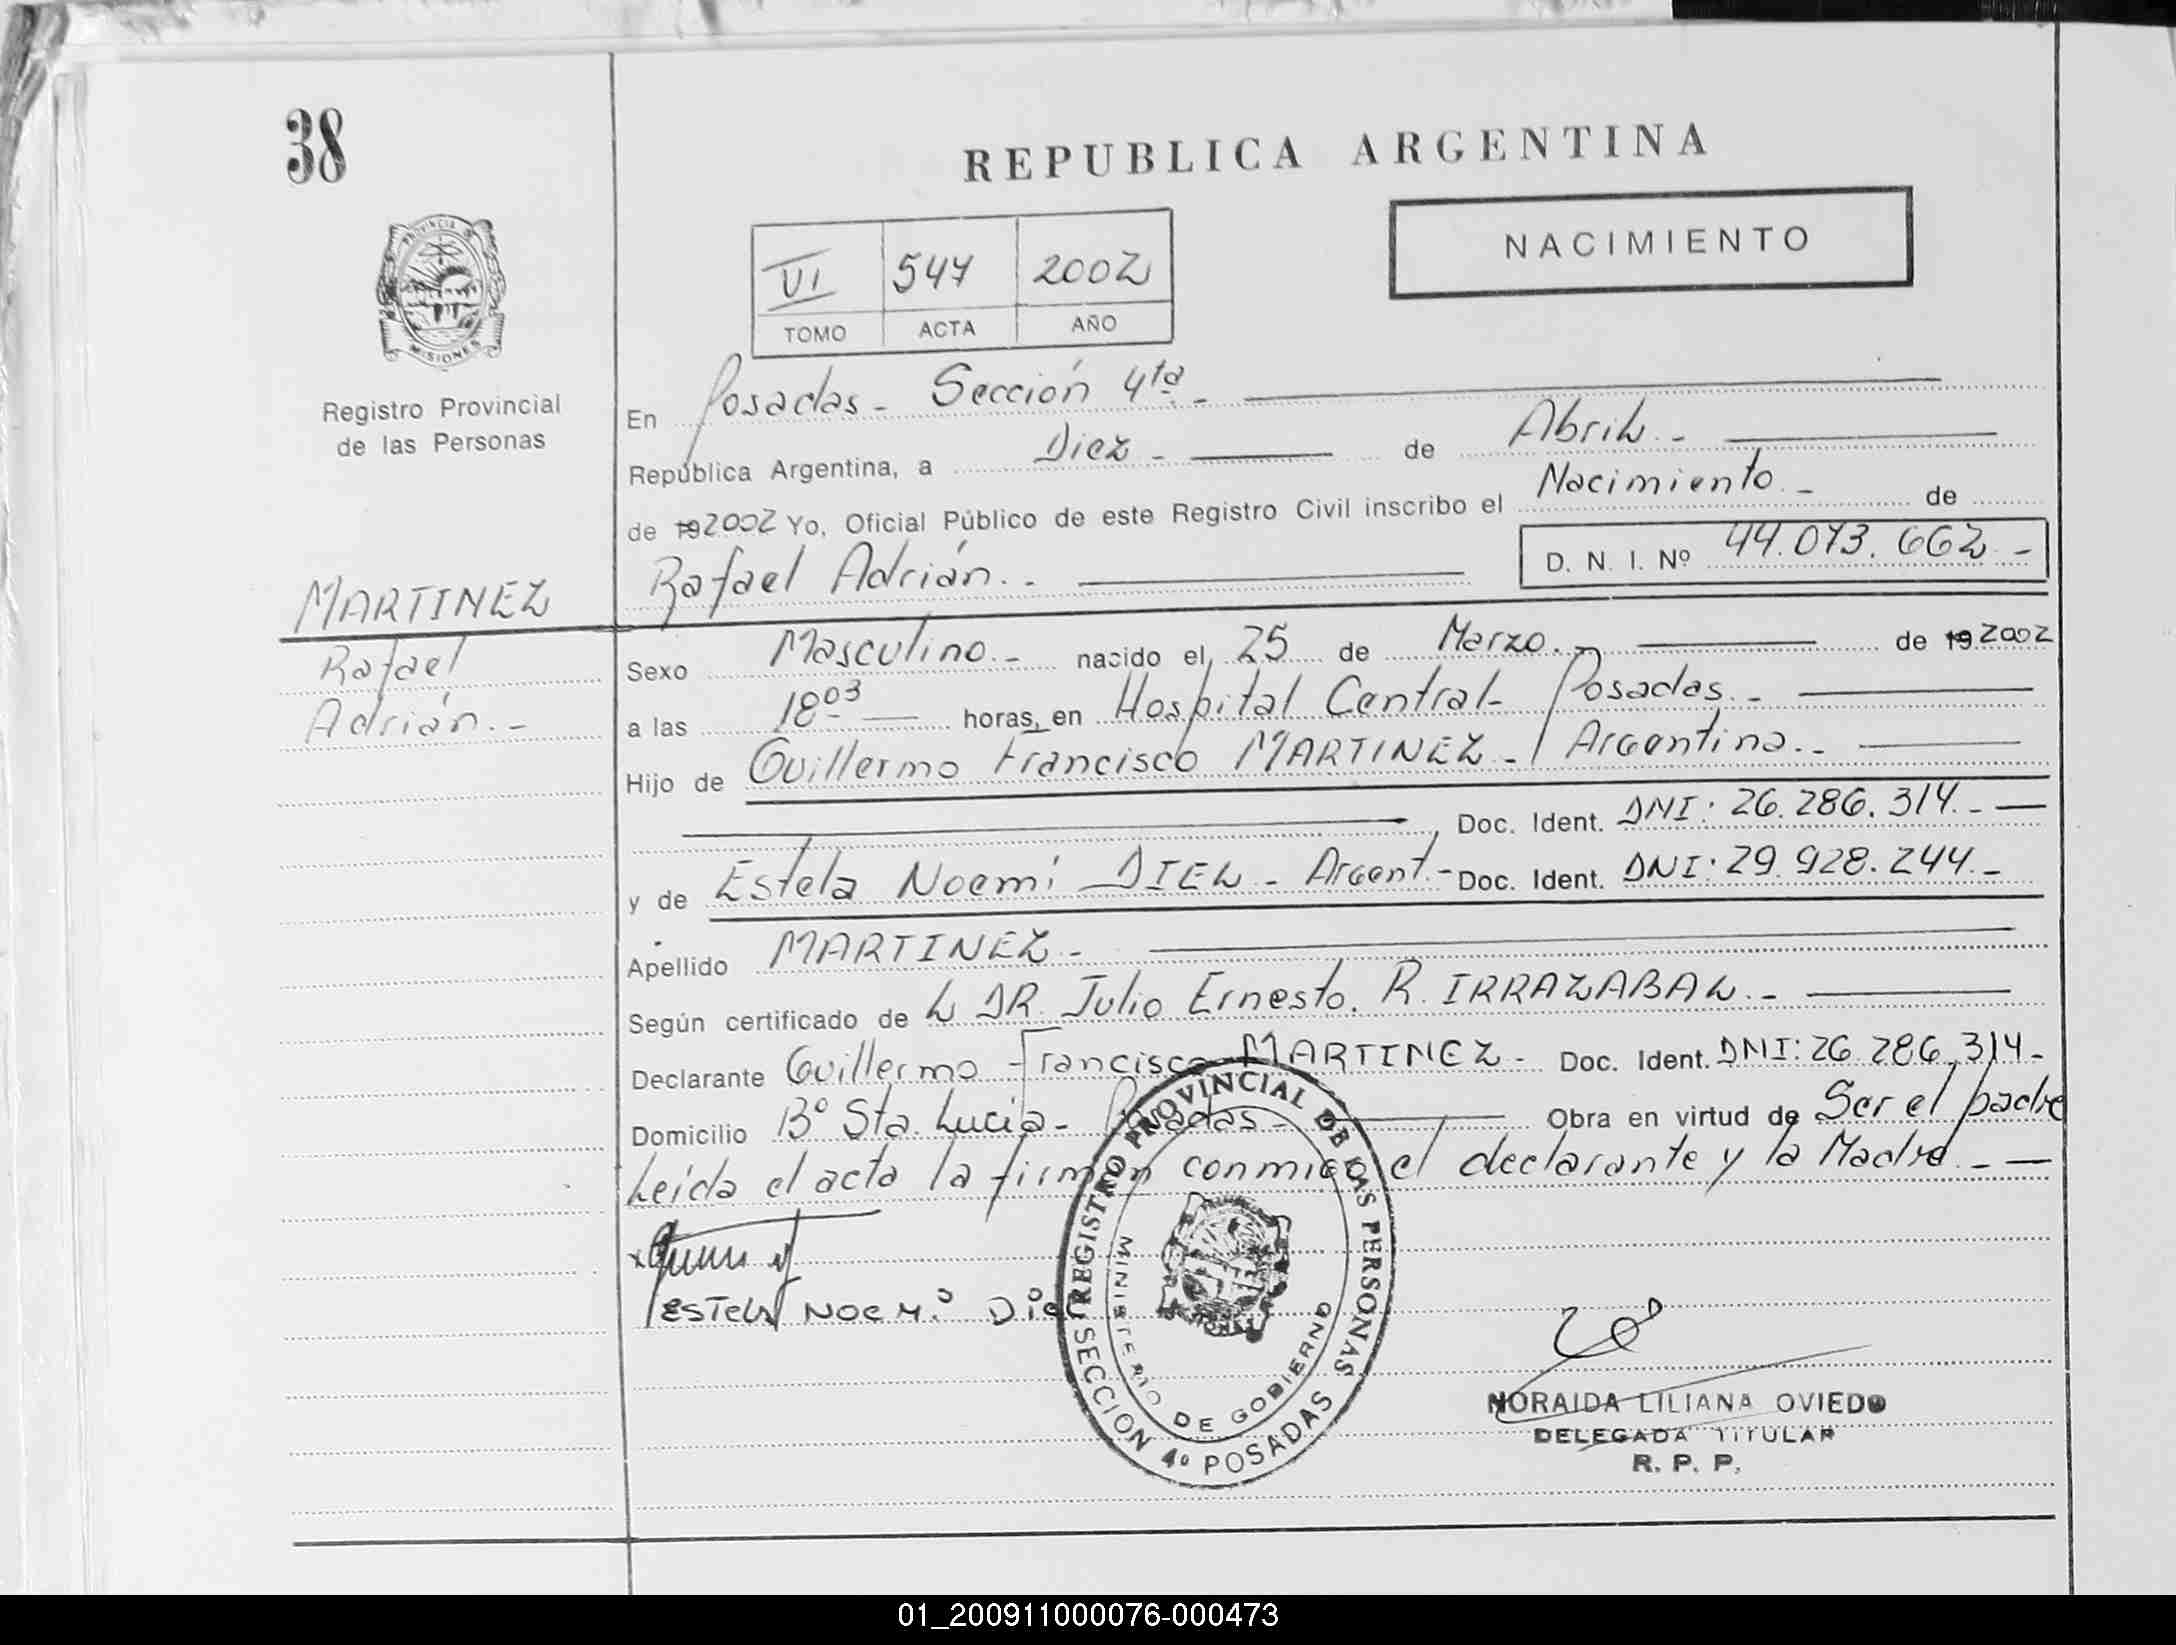 38
REPUBLICA ARGENTINA
NACIMIENTO
VI 544 2002
TOMO ACTA AÑO
PROVINCIA DE
MISIONES
Registro Provincial
de las Personas
En Posadas - Sección 4ta -
República Argentina, a Diez - de Abril -
de 192002 Yo, Oficial Público de este Registro Civil inscribo el Nacimiento - de
Rafael Adrián. - D. N. I. Nº 44.073.662 -
MARTINEZ
Rafael
Adrián. -
Sexo Masculino. - nacido el 25 de Marzo. de 19 2002
a las 18 03 horas, en Hospital Central - Posadas. -
Hijo de Guillermo Francisco MARTINEZ - Argentina. -
Doc. Ident. DNI: 26.286.314. -
y de Estela Noemí DIEL - Argent. - Doc. Ident. DNI: 29.928.244. -
Apellido MARTINEZ -
Según certificado de L DR. Julio Ernesto. R. IRRAZABAL. -
Declarante Guillermo Francisco MARTINEZ - Doc. Ident. DNI: 26.286.314 -
Domicilio Bº Sta. Lucia - Posadas - Obra en virtud de Ser el padre
Leída el acta la firman conmigo el declarante y la Madre. -
ESTELA NOEMí
REGISTRO PROVINCIAL DE LAS PERSONAS
MINISTERIO DE GOBIERNO
SECCION 4º POSADAS
NORAIDA LILIANA OVIEDO
DELEGADA TITULAR
R. P. P.
01_200911000076-000473